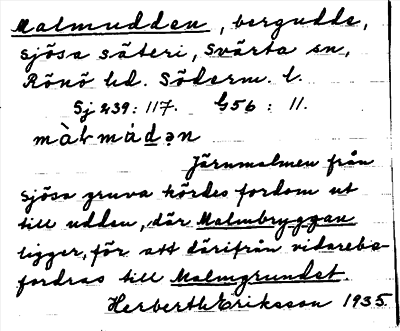 Malmudden, bergudde,
Sjösa säteri, Svärta sn,
Rönö hd. Söderm. l.
Sj 239: 117. G56 : 11.
màlmádən
Järnmalmen från
Sjösa gruva kördes fordom ut
till udden, där Malmbryggan
ligger, för att därifrån vidarebe-
fordras till Malmgrundet.
Herberth Eriksson 1935